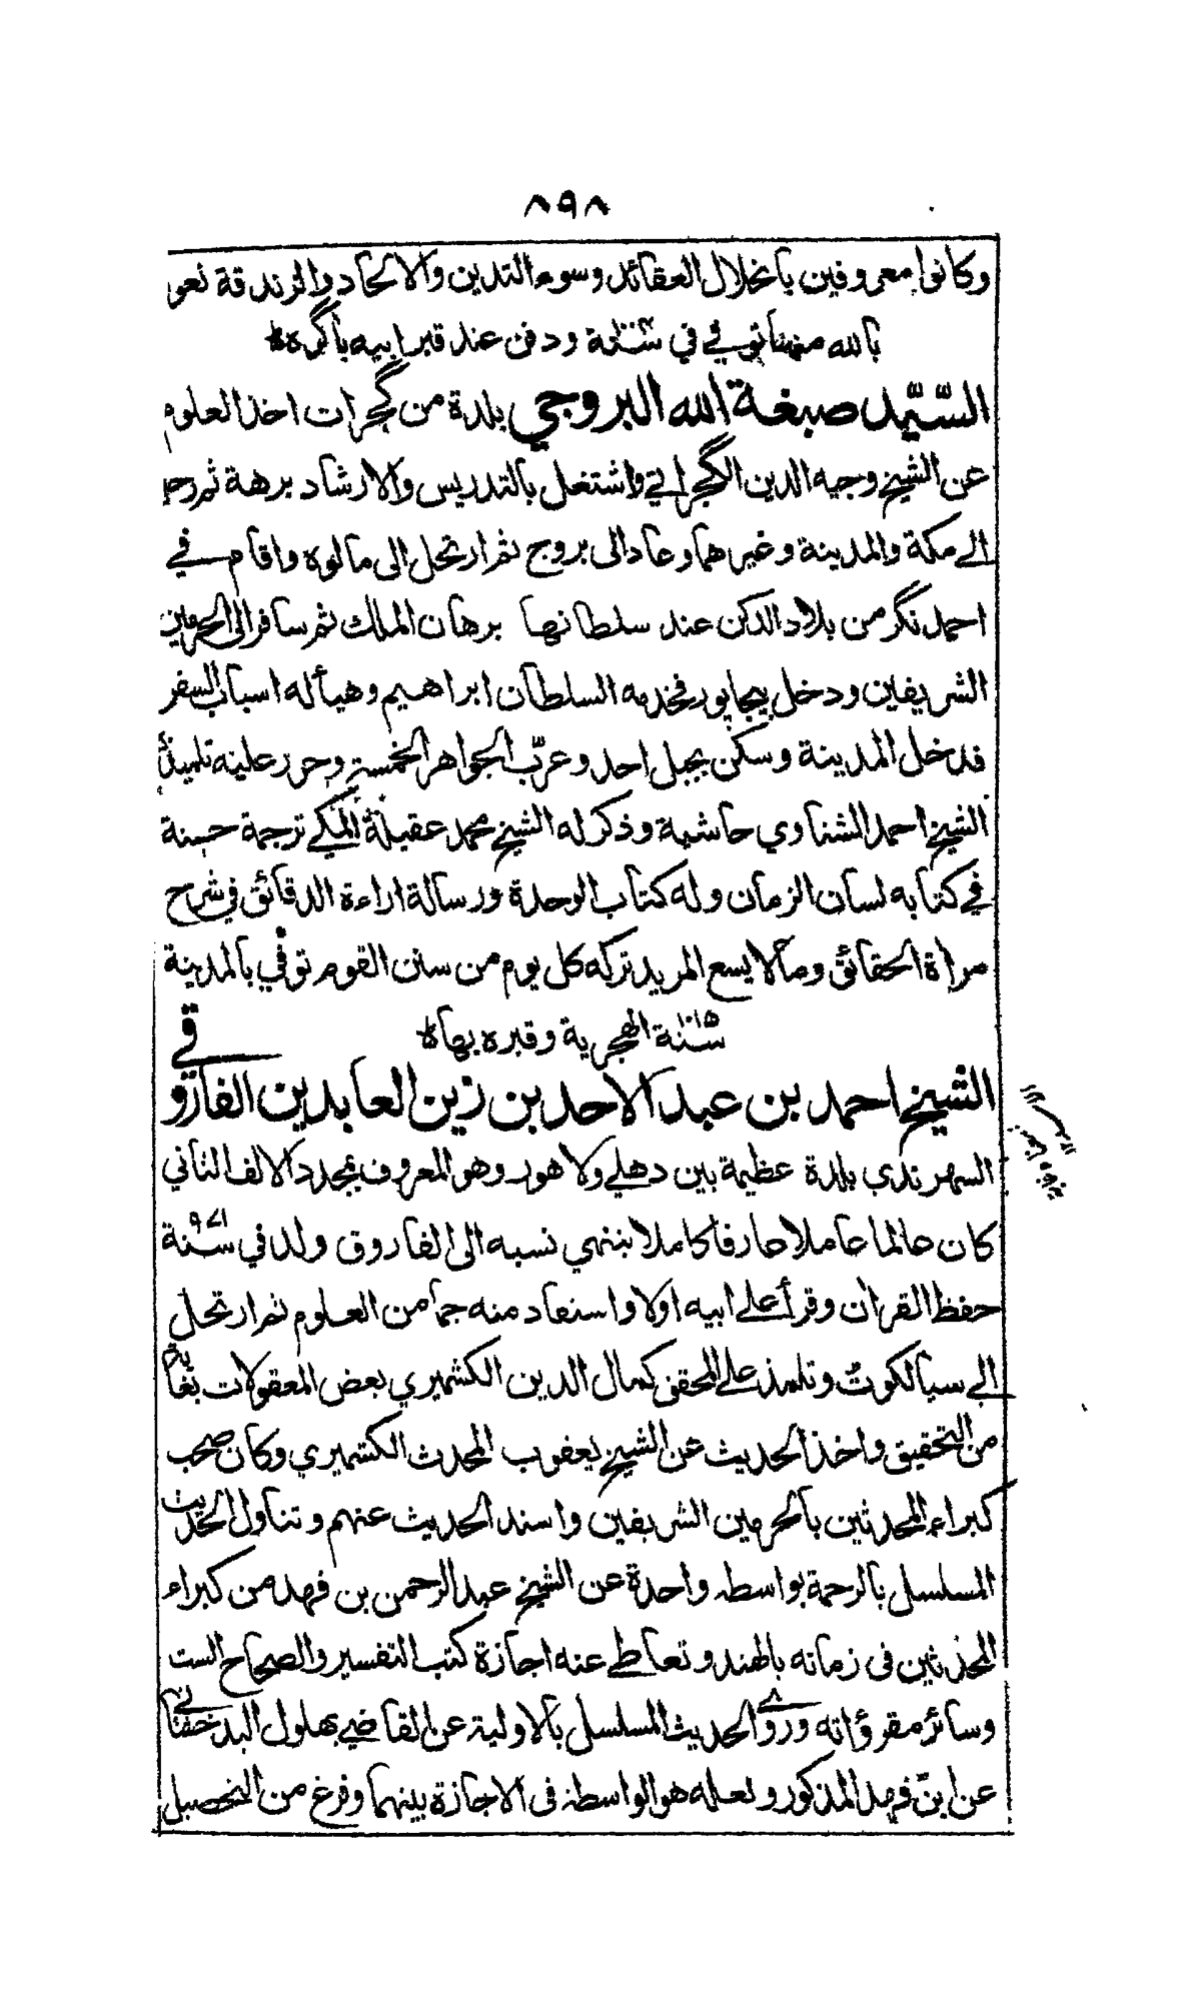 ٨٩٨
وكانوا معروفين بانحلال العقائد وسوء التدين والالحاد والزندقة نعوذ
بالله منها توفي في سنة ودفن عند قبر ابيه باكره
السّيّد صبغة الله البروجي بلدة من گجرات اخذ العلوم
عن الشيخ وجيه الدين الگجراتي واشتغل بالتدريس والارشاد برهة ثم رحل
الى مكة والمدينة وغيرهما وعاد الى بروج ثم ارتحل الى مالوه واقام في
احمد نگر من بلاد الدكن عند سلطانها برهان الملك ثم سافر الى الحرمين
الشريفين ودخل بيجاپور فخدمه السلطان ابراهيم وهيأ له اسباب السفر
فدخل المدينة وسكن بجبل احد وعرّب الجواهر الخمسة وحرر عليه تلميذه
الشيخ احمد الشناوي حاشية وذكر له الشيخ محمد عقيلة المكي ترجمة حسنة
في كتابه لسان الزمان وله كتاب الوحدة ورسالة اراءة الدقائق في شرح
مراة الحقائق وما لا يسع المريد تركه كل يوم من سنن القوم توفي بالمدينة
سنة ١٠١٥ الهجرية وقبره بها
الشيخ احمد بن عبد الاحد بن زين العابدين الفاروقي
السهرندي بلدة عظيمة بين دهلي ولاهور وهو المعروف بمجدد الالف الثاني
كان عالما عاملا عارفا كاملا ينتهي نسبه الى الفاروق ولد في سنة ٩٧١
حفظ القران وقرأ على ابيه اولا واستفاد منه جما من العلوم ثم ارتحل
الى سيالكوت وتلمذ على المحقق كمال الدين الكشميري بعض المعقولات بغاية
من التحقيق واخذ الحديث عن الشيخ يعقوب المحدث الكشميري وكان صحب
كبراء المحدثين بالحرمين الشريفين واسند الحديث عنهم وتناول الحديث
المسلسل بالرحمة بواسطه واحدة عن الشيخ عبد الرحمن بن فهد من كبراء
المحدثين فى زمانه بالهند وتعاطى عنه اجازة كتب التفسير والصحاح الست
وسائر مقرؤاته وروى الحديث المسلسل بالاولية عن القاضي بهلول البدخشاني
عن ابن فهد المذكور ولعله هو الواسطة فى الاجازة بينهما وفرغ من التحصيل